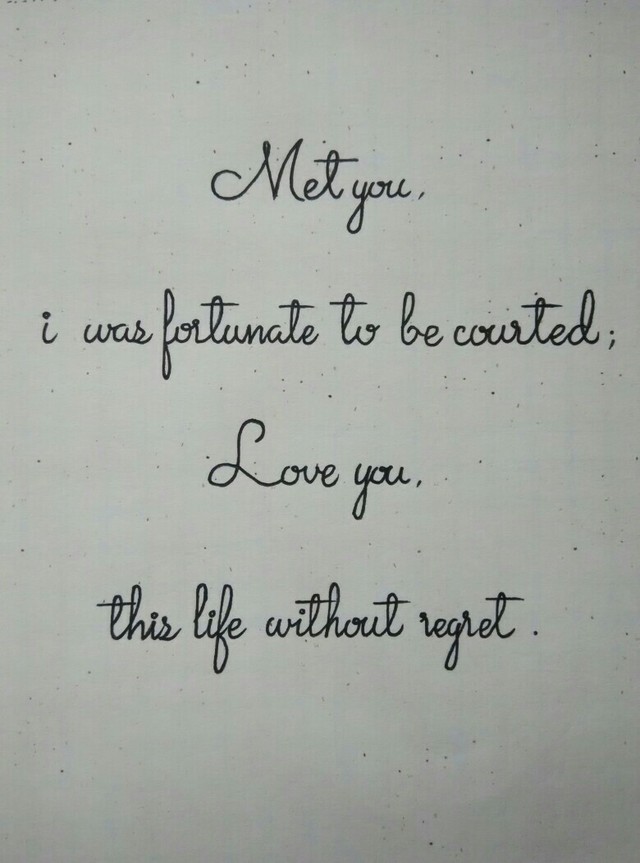 Met you,
i was fortunate to be courted;
Love you,
this life without regret.